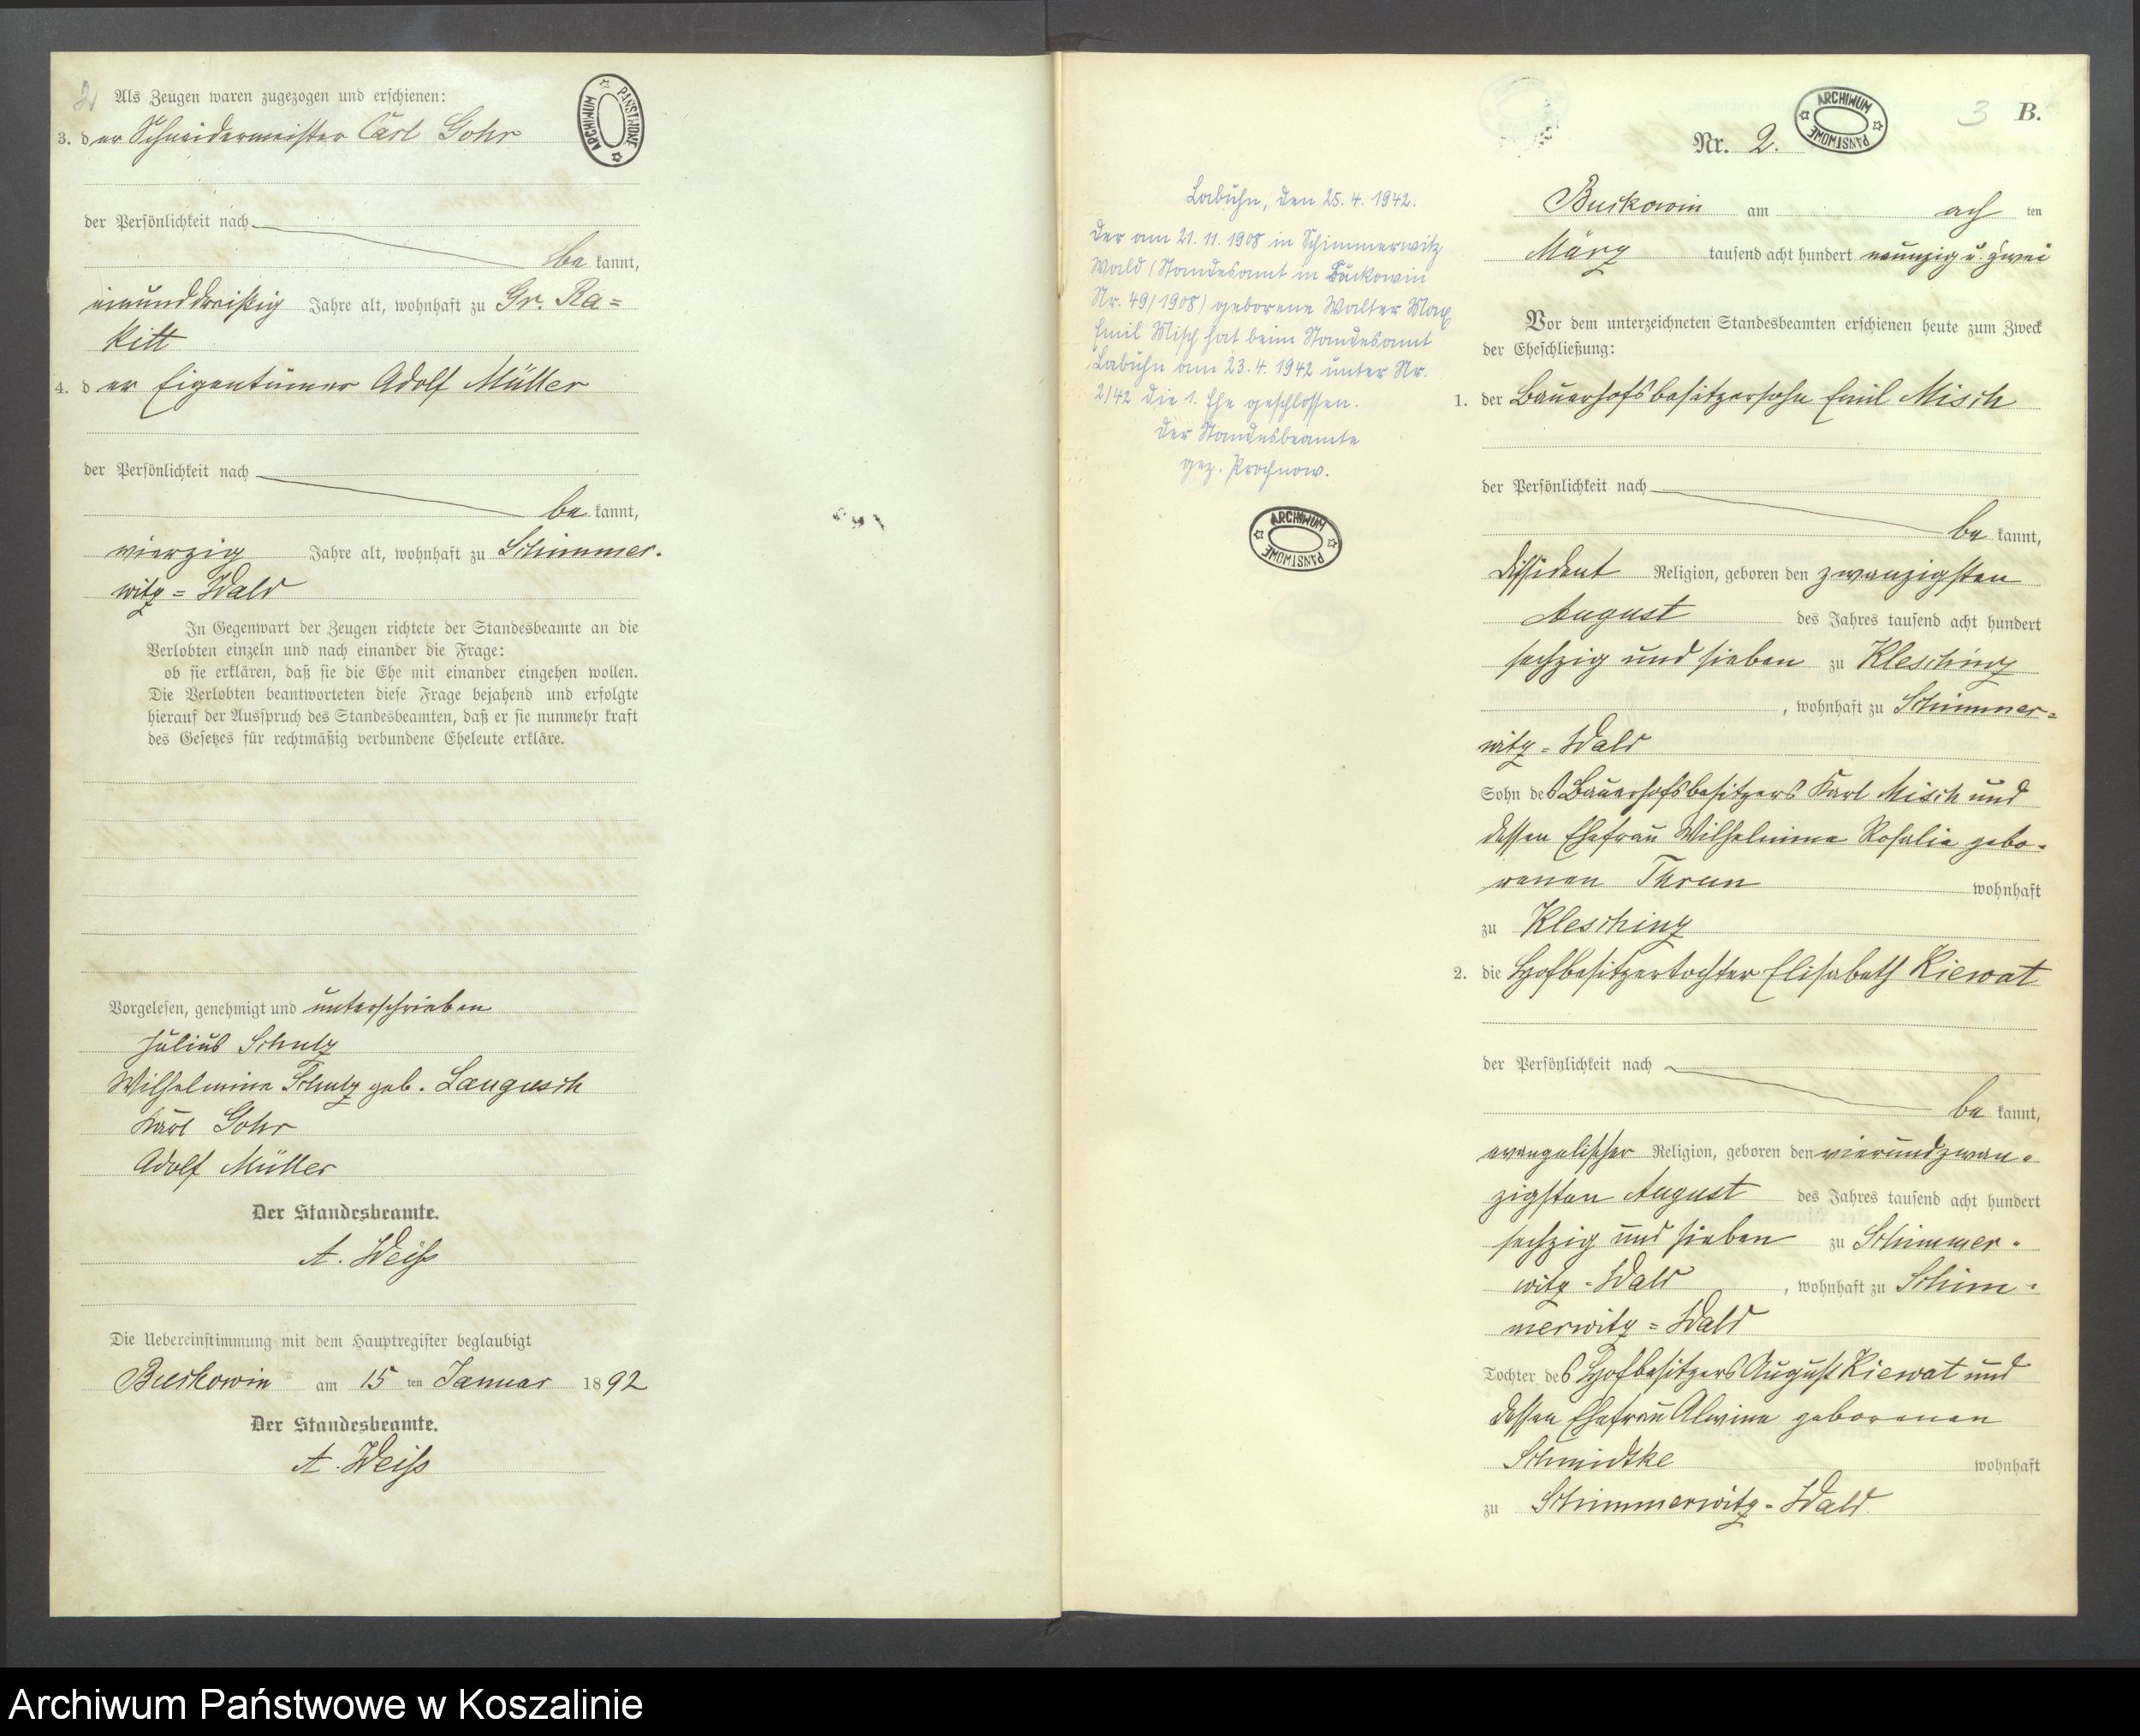 2
Als Zeugen waren zugezogen und erschienen:
3. d er Schneidermeister Carl Gohr
der Persönlichkeit nach
be kannt,
einunddreißig Jahre alt, wohnhaft zu Gr. Ra=
kitt
4. d er Eigentümer Adolf Müller
der Persönlichkeit nach
be kannt,
vierzig Jahre alt, wohnhaft zu Schimmer-
witz = Wald
In Gegenwart der Zeugen richtete der Standesbeamte an die
Verlobten einzeln und nach einander die Frage:
ob sie erklären, daß sie die Ehe mit einander eingehen wollen.
Die Verlobten beantworteten diese Frage bejahend und erfolgte
hierauf der Ausspruch des Standesbeamten, daß er sie nunmehr kraft
des Gesetzes für rechtmäßig verbundene Eheleute erkläre.
Vorgelesen, genehmigt und unterschrieben
Julius Schulz
Wilhelmine Schulz geb. Langusch
Karl Gohr
Adolf Müller
Der Standesbeamte.
A. Weiß
Die Uebereinstimmung mit dem Hauptregister beglaubigt
Buckowin am 15 ten Januar 1892
Der Standesbeamte.
A. Weiß
ARCHIWUM PAŃSTWOWE
Labuhn, den 25. 4. 1942.
Der am 21. 11. 1908 in Schimmerwitz
Wald (Standesamt in Buckowin
Nr. 49/1908) geborene Walter Max
Emil Misch hat beim Standesamt
Labuhn am 23. 4. 1942 unter Nr.
2/42 die 1. Ehe geschlossen.
Der Standesbeamte
gez. Prochnow.
ARCHIWUM PAŃSTWOWE
3 B.
Nr. 2.
ARCHIWUM PAŃSTWOWE
Buckowin am ach ten
März tausend acht hundert neunzig u. zwei
Vor dem unterzeichneten Standesbeamten erschienen heute zum Zweck
der Eheschließung:
1. der Bauerhofsbesitzersohn Emil Misch
der Persönlichkeit nach
be kannt,
dissident Religion, geboren den zwanzigsten
August des Jahres tausend acht hundert
sechzig und sieben zu Klesching
, wohnhaft zu Schimmer=
witz = Wald
Sohn des Bauerhofsbesitzers Karl Misch und
dessen Ehefrau Wilhelmine Rosalie gebo-
renen Thrun wohnhaft
zu Kleschinz
2. die Hofbesitzertochter Elisabeth Kiewat
der Persönlichkeit nach
be kannt,
evangelischer Religion, geboren den vierundzwan-
zigsten August des Jahres tausend acht hundert
sechzig und sieben zu Schimmer-
witz = Wald , wohnhaft zu Schim-
merwitz = Wald
Tochter des Hofbesitzers August Kiewat und
dessen Ehefrau Alwine geborenen
Schmidtke wohnhaft
zu Schimmerwitz = Wald.
Archiwum Państwowe w Koszalinie